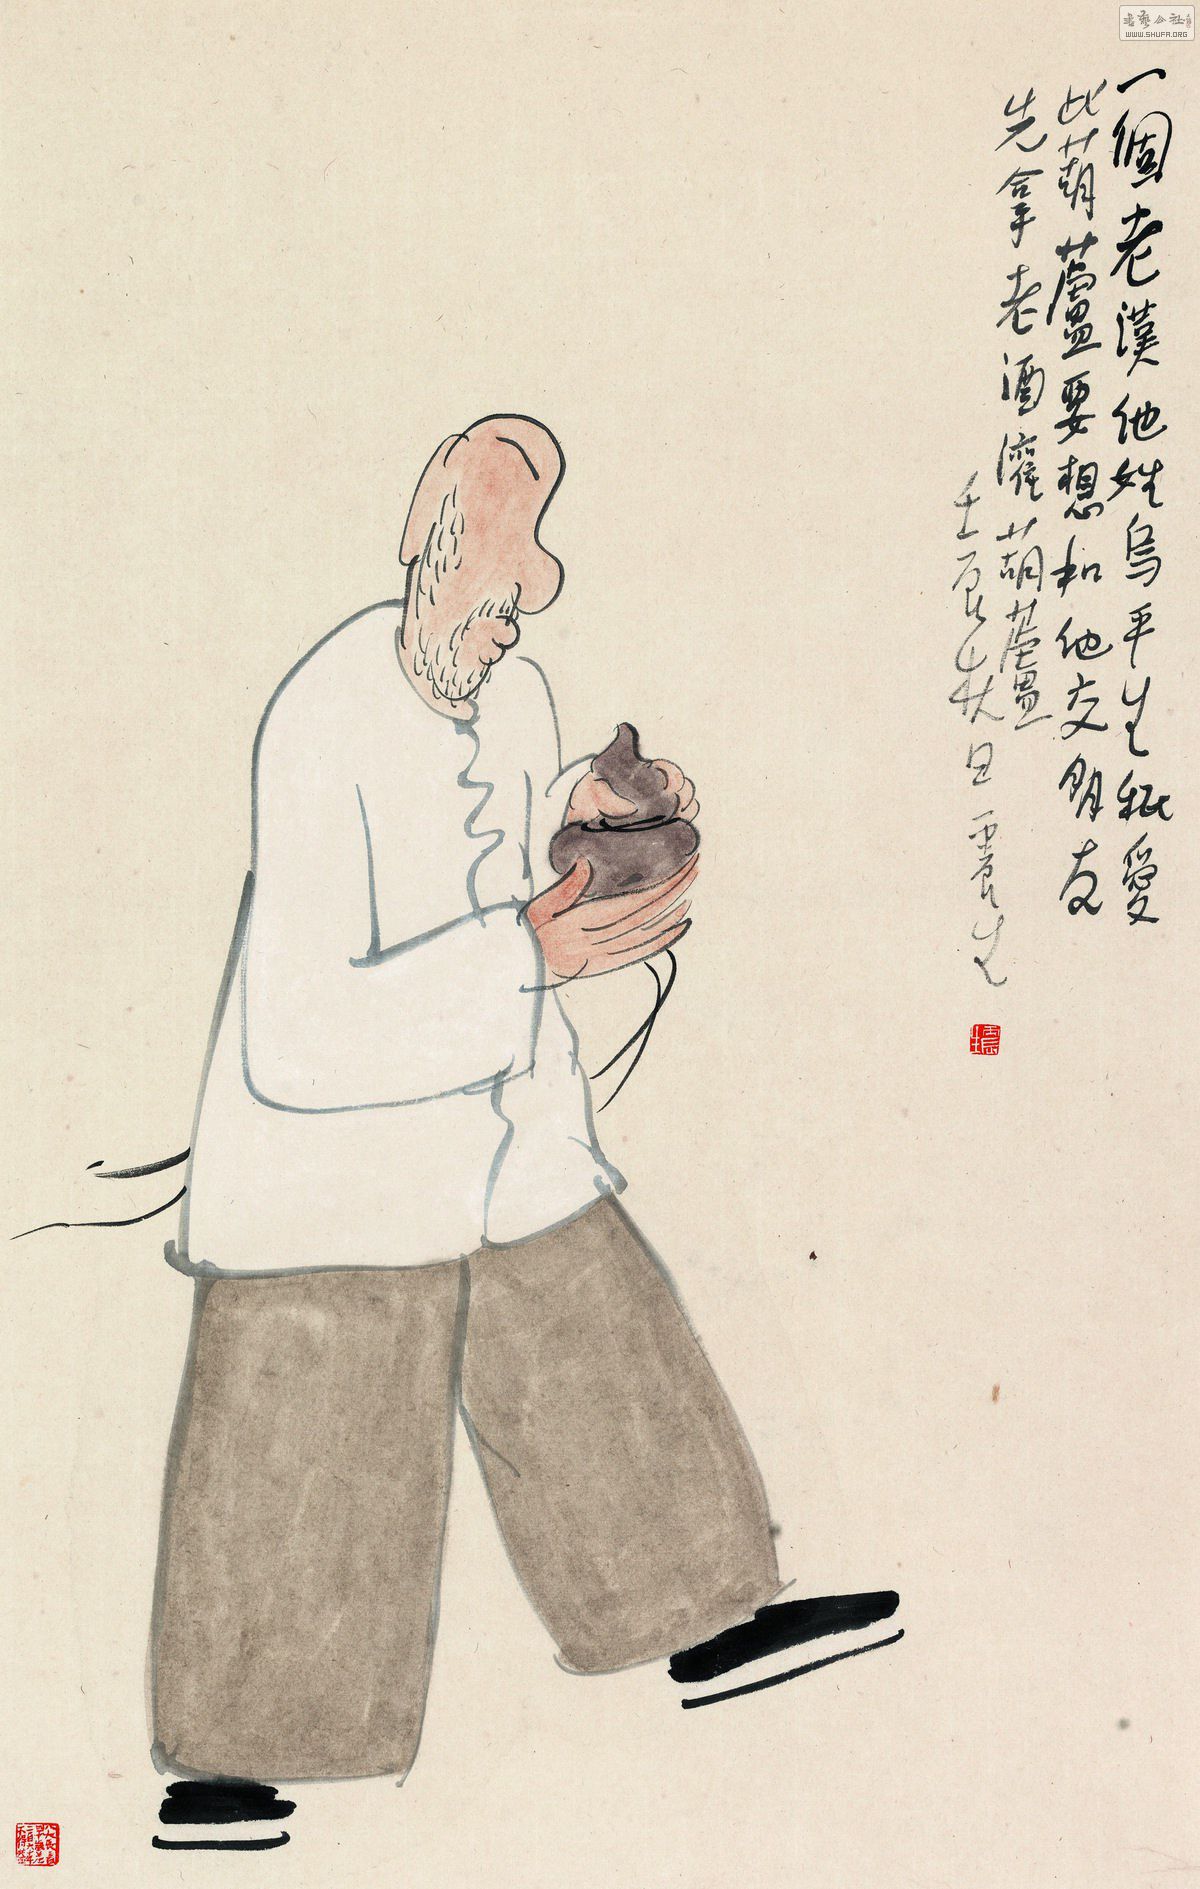 一個老漢他姓烏平生秖愛
此葫蘆要想和他交朋友
先拿老酒灌葫蘆
壬辰秋日震生
書藝公社
WWW.SHUFA.ORG